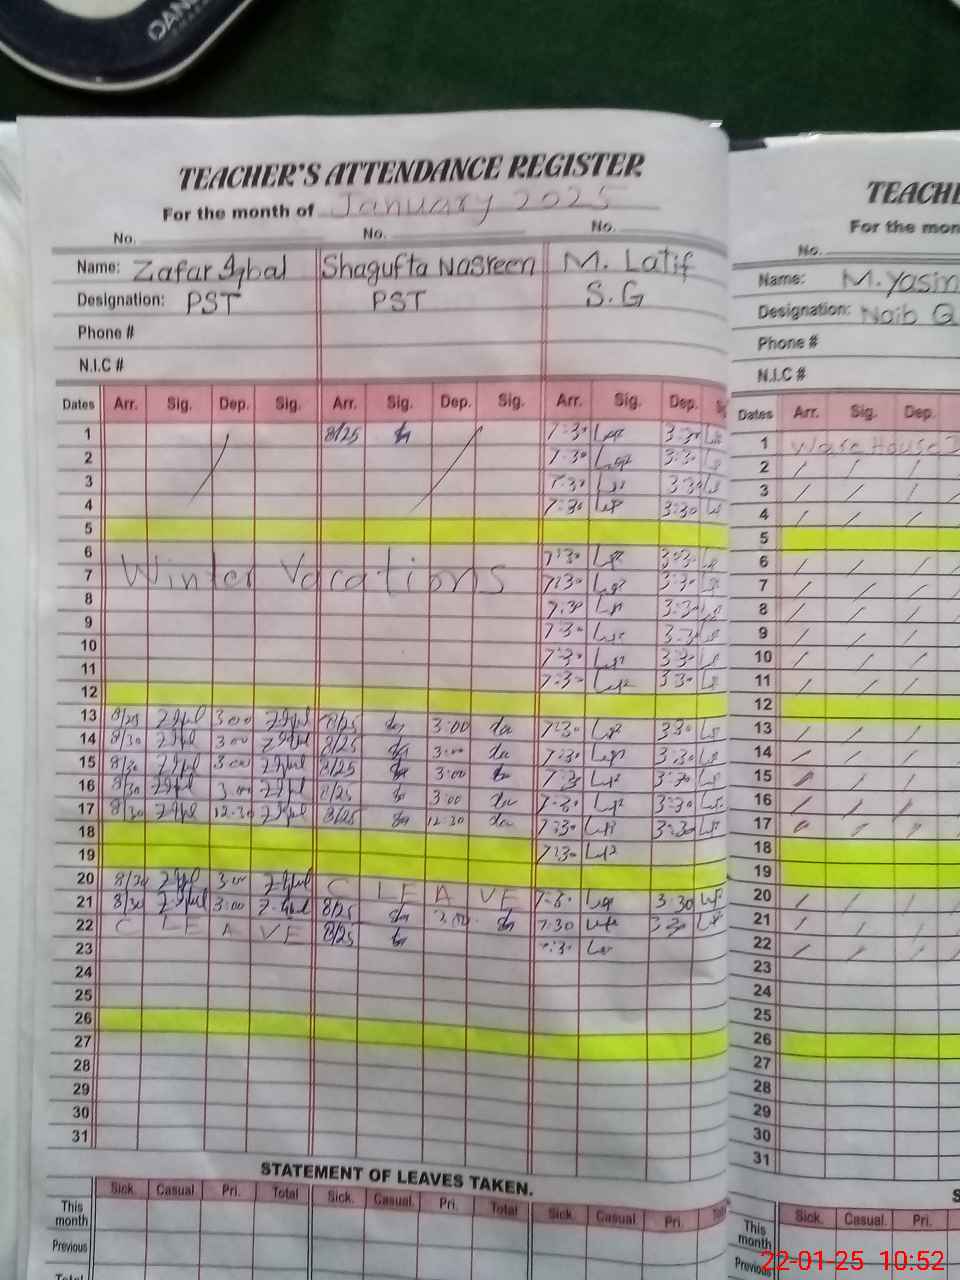 DAN
TEACHER'S ATTENDANCE REGISTER
For the month of January 2025
No. No. No.
Name: Zafar Iqbal Shagufta Nasreen M. Latif
Designation: PST PST S.G
Phone #
N.I.C #
Dates Arr. Sig. Dep. Sig. Arr. Sig. Dep. Sig. Arr. Sig. Dep.
1 8/25 7:30 3:30
2 7:30 3:30
3 7:30 3:30
4 7:30 3:30
5
6 7:30 3:30
7 Winter Vacations 7:30 3:30
8 7:30 3:30
9 7:30 3:30
10 7:30 3:30
11 7:30 3:30
12
13 8/25 3:00 8/25 3:00 7:30 3:30
14 8/30 3:00 8/25 3:00 7:30 3:30
15 8/30 3:00 8/25 3:00 7:30 3:30
16 8/30 3:00 8/25 3:00 7:30 3:30
17 8/30 12:30 8/25 12:30 7:30 3:30
18 7:30
19
20 8/30 3:00 C LEAVE 7:30 3:30
21 8/30 3:00 8/25 3:00 7:30 3:30
22 C LEAVE 8/25 7:30
23
24
25
26
27
28
29
30
31
STATEMENT OF LEAVES TAKEN.
Sick. Casual Pri. Total Sick. Casual. Pri. Total Sick. Casual Pri.
This month
Previous
Total
TEACHE
For the mon
No.
Name: M. Yasin
Designation: Naib Q
Phone #
N.I.C #
Dates Arr. Sig. Dep.
1 Ware House
2
3
4
5
6
7
8
9
10
11
12
13
14
15
16
17
18
19
20
21
22
23
24
25
26
27
28
29
30
31
S
Sick. Casual. Pri.
This month
Previous
22-01-25 10:52